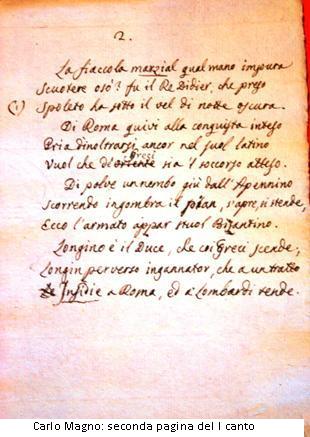 2.
La fiaccola marzial qual mano impura
Scuotere osò? fu il Re Didier, che preso
(1) Spoleto ha sotto il vel di notte oscura.
Di Roma quivi alla conquista inteso
Pria d'inoltrarsi ancor nel suol latino
Greci
Vuol che d'oriente sia 'l soccorso atteso.
Di polve un nembo giù dall'Apennino
Scorrendo ingombra il pian, s'apre, si stende,
Ecco l'armato appar stuol Bizantino.
Longino è il Duce, che coi Greci scende;
Longin perverso ingannator, che a un tratto
Insidie a Roma, ed a Lombardi tende.
Carlo Magno: seconda pagina del I canto